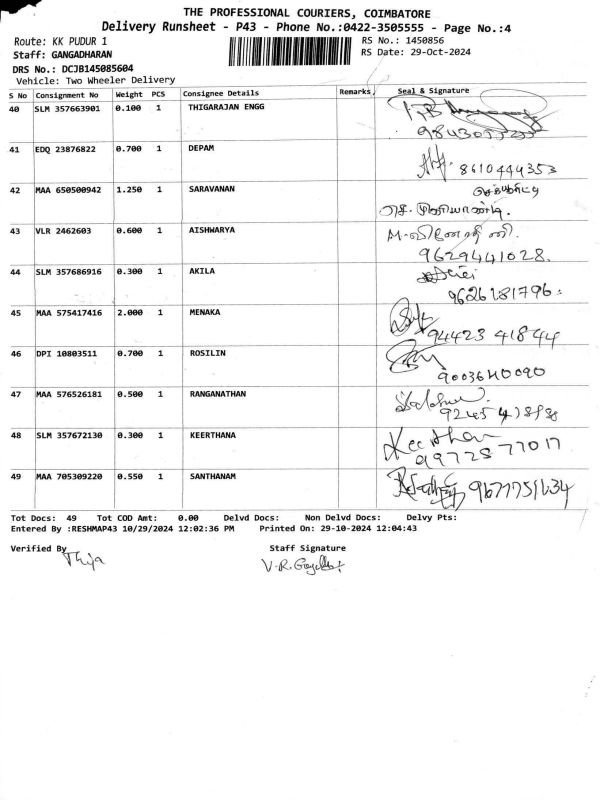 THE PROFESSIONAL COURIERS, COIMBATORE
Delivery Runsheet - P43 - Phone No.:0422-3505555 - Page No.:4
Route: KK PUDUR 1 RS No.: 1450856
Staff: GANGADHARAN RS Date: 29-Oct-2024
DRS No.: DCJB145085604
Vehicle: Two Wheeler Delivery
S No Consignment No Weight PCS Consignee Details Remarks Seal & Signature
40 SLM 357663901 0.100 1 THIGARAJAN ENGG
41 EDQ 23876822 0.700 1 DEPAM 8610444353
42 MAA 650500942 1.250 1 SARAVANAN
43 VLR 2462603 0.600 1 AISHWARYA
9629441028.
44 SLM 357686916 0.300 1 AKILA
9626181796
45 MAA 575417416 2.000 1 MENAKA
94423 41844
46 DPI 10803511 0.700 1 ROSILIN
47 MAA 576526181 0.500 1 RANGANATHAN
48 SLM 357672130 0.300 1 KEERTHANA Keerthana
49 MAA 705309220 0.550 1 SANTHANAM
Tot Docs: 49 Tot COD Amt: 0.00 Delvd Docs: Non Delvd Docs: Delvy Pts:
Entered By :RESHMAP43 10/29/2024 12:02:36 PM Printed On: 29-10-2024 12:04:43
Verified By Staff Signature